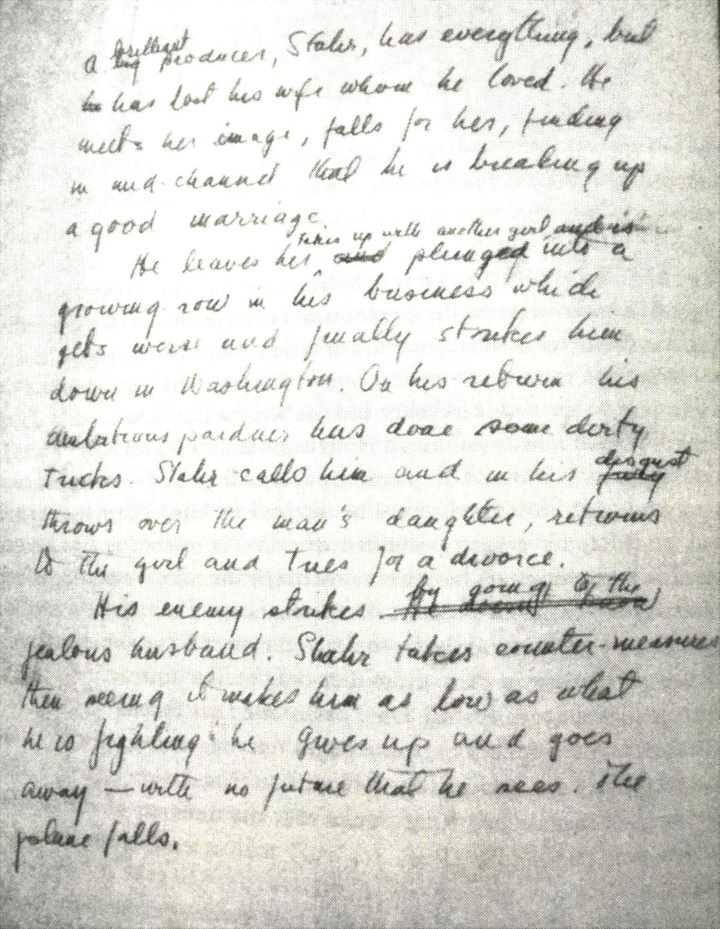 a brilliant producer, Stahr, has everything, but
has lost his wife whom he loved. He
meets her image, falls for her, finding
in mid-channel that he is breaking up
a good marriage
takes up with another girl and is
He leaves her and plunged into a
growing row in his business which
gets worse and finally strikes him
down in Washington. On his return his
ambitious pardner has done some dirty
disgust
tricks Stahr calls him and in his fury
throws over the man's daughter, returns
to the girl and tries for a divorce.
by going to the
His enemy strikes.
jealous husband. Stahr takes counter-measures
then seeing it makes him as low as what
he is fighting he gives up and goes
away — with no future that he sees. The
plane falls.